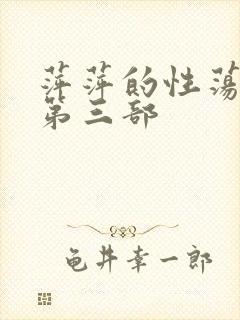 萍萍的性荡
第三部
龟井幸一郎